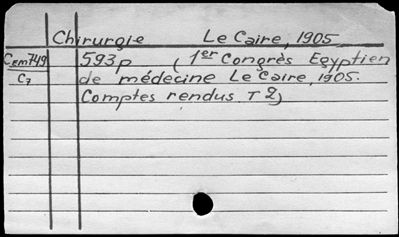 Chirurgie Le Caire, 1905
Cem 749 593p (1er Congrès Egyptien
C7 de médecine Le Caire, 1905.
Comptes rendus T 2)